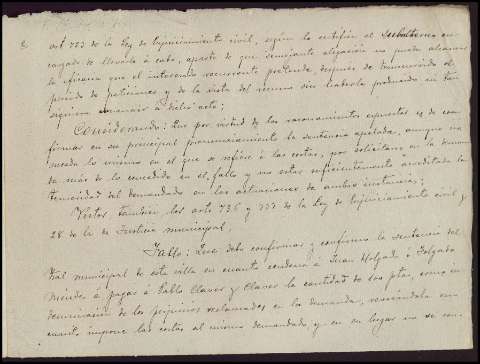 art 723 de la Ley de Enjuiciamiento civil, según lo certifica el Subalterno en-
cargado de llevarlo á cabo, aparte de que semejante alegación no puede alcanzar
la eficacia que el interesado recurrente pretende, después de transcurrido el
período de peticiones y de la vista del recurso sin haberla producido ni tan
siquiera á dicho acto;
Considerando: Que por virtud de los razonamientos expuestos es de con-
firmar en su principal pronunciamiento la sentencia apelada, aunque no
suceda lo mismo en el que se refiere á las costas, por solicitarse en la demanda
más de lo concedido en el fallo y no estar suficientemente acreditada la
temeridad del demandado en las actuaciones de ambas instancias;
Vistos también los arts 736 y 737 de la Ley de Enjuiciamiento civil y
28 de la de Justicia municipal,
Fallo: Que debo confirmar y confirmo la sentencia del
nal municipal de esta villa en cuanto condena á Juan Holgado ó Folgado
Mendez á pagar á Pablo Claver y Claver la cantidad de ptas, como in-
demnización de los perjuicios reclamados en la demanda, revocándola en
cuanto impone las costas al mismo demandado, y en su lugar no se